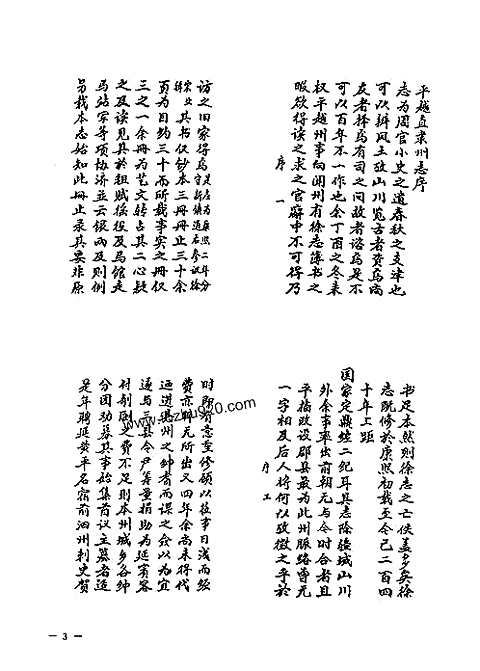 平越直隶州志序
志为周官小史之遗春秋之支津也
可以辨风土攷山川览古者资焉尚
友者择焉有司之问故者谘焉是不
可以百年不一作也余丁酉之冬来
权平越州事向闻州有徐志簿书之
暇欲得读之求之官廨中不可得乃
序 一
访之旧家得焉
其书仅钞本三册册止三十余
页为目约三十而所载事实之册仅
三之一余册为艺文转占其二心疑
之及读见其于租赋徭役及马馆走
马站军等项协济并云银两及则例
另载本志始知此册止录其要非原
书足本然则徐志之亡佚盖多矣徐
志既修于康熙初载至今已二百四
十年上距
国家定鼎蛙二纪耳其志除疆域山川
外余事率出前朝无与今时合者且
平播改设郡县最为此州脤络曾无
一字相及后人将何以攷徵之乎于
序 二
时即有意至修顾以莅事日浅而经
费亦无所出又四年余尚未得代
乃进州之绅耆而谋之佥以为宜
遂与三县令尹筹量捐助为延宾客
付剞劂之费不足则本州城乡各绅
分团劝募其事始集首议主纂者适
是年聘延黄平名宿前泗州刺史贺
— 3 —